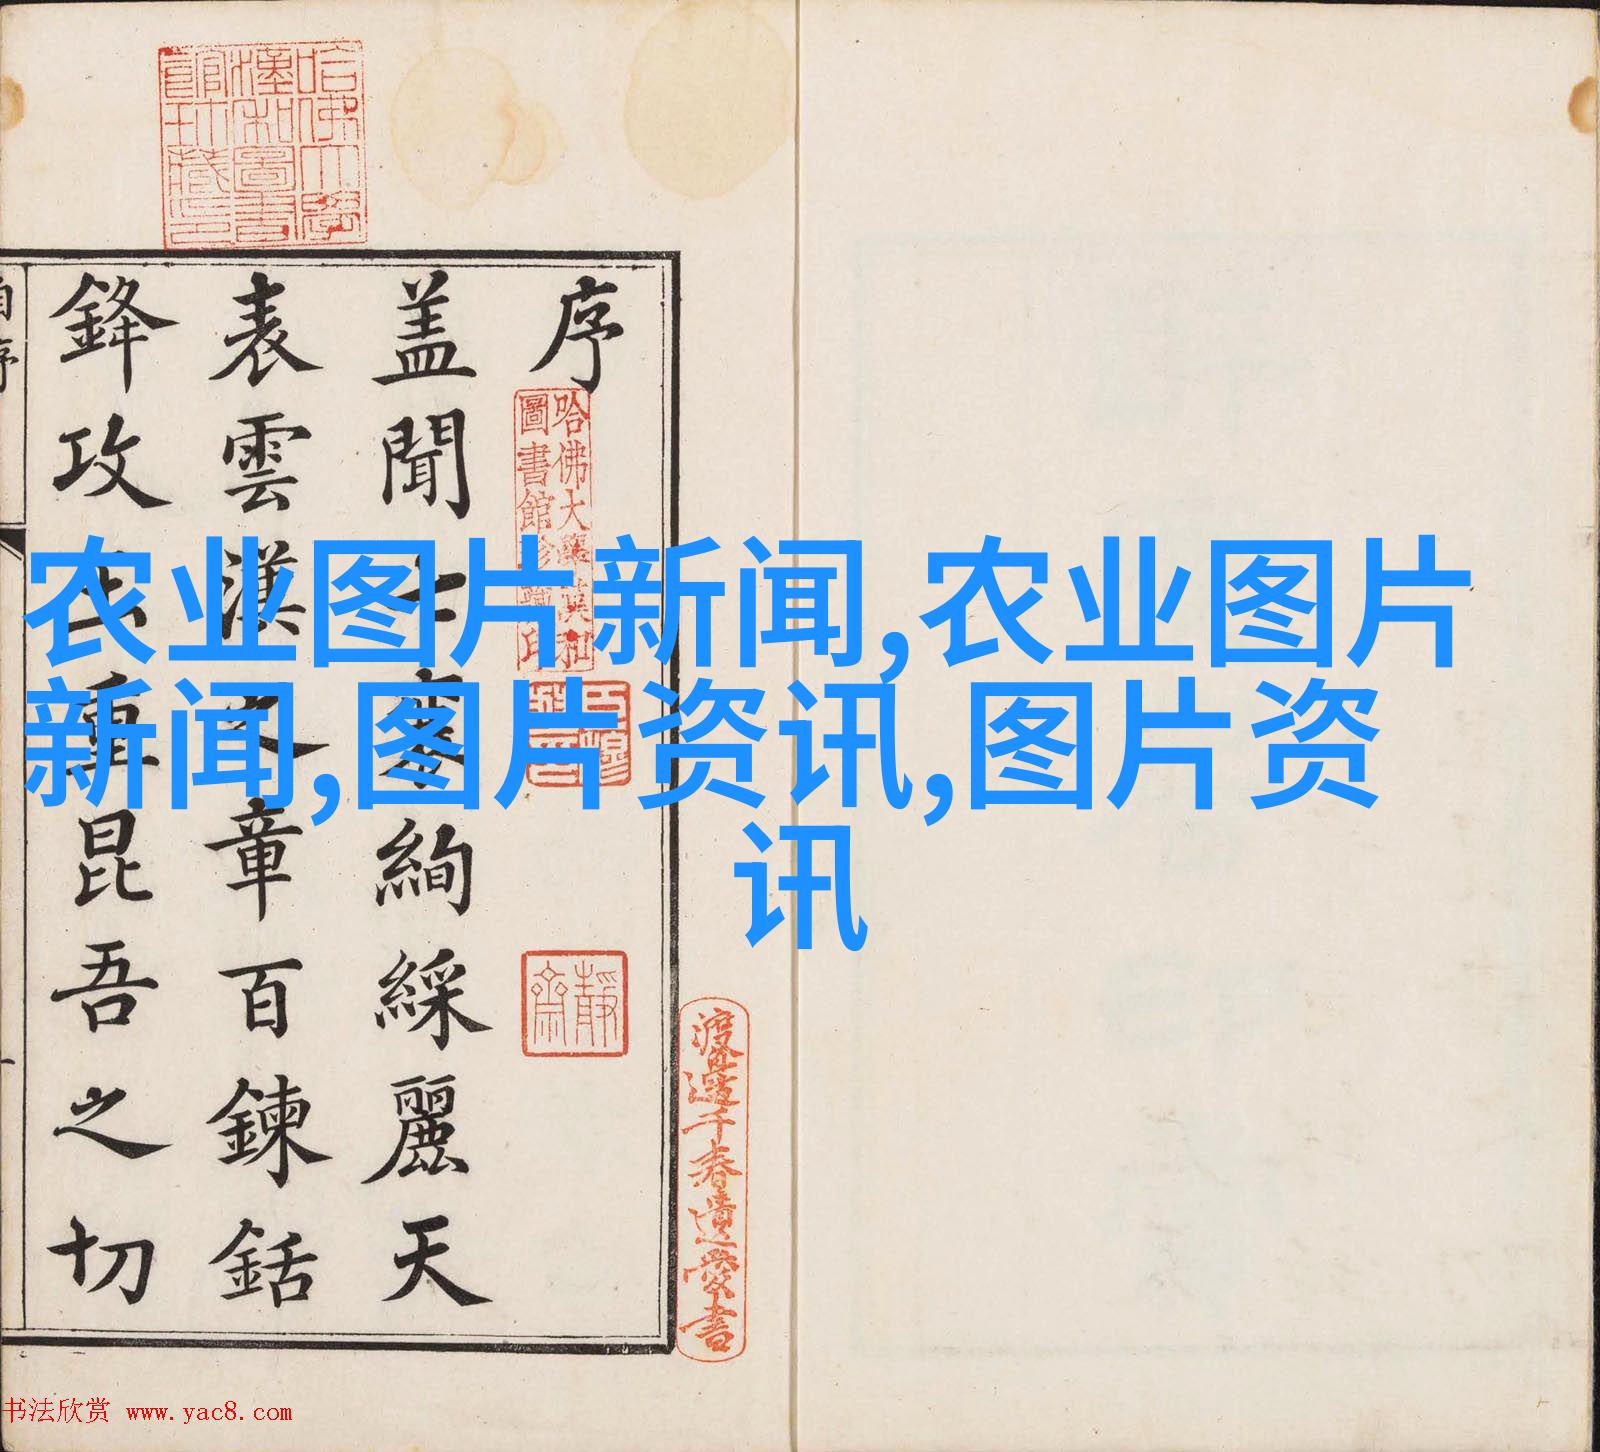 哈佛大學
漢和圖書
館珍藏印
序
哈佛大學漢和
圖書館珍藏印
靜齋
渡邊千春遺愛書
蓋聞七
絢綵麗天
表雲漢
章百鍊銛
鋒攻
昆吾之切
自序
农业图片新闻,农业图片
新闻,图片资讯,图片资
讯
书法欣赏 www.yac8.com